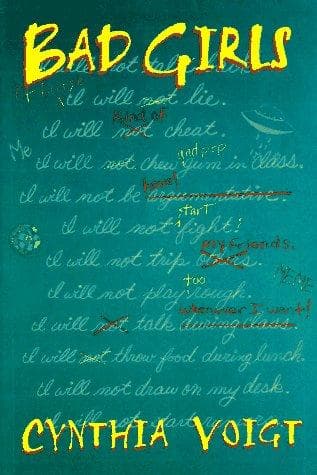 BAD GIRLS
I will not talk back.
I will not lie.
kind of
I will not cheat.
Me
and pop
I will not chew gum in class.
I will not be argumentative.
start
I will not fight!
my friends.
I will not trip others.
ME, ME
too
I will not play rough.
whenever I want!
I will not talk during
I will not throw food during lunch.
I will not draw on my desk.
I will not start
CYNTHIA VOIGT